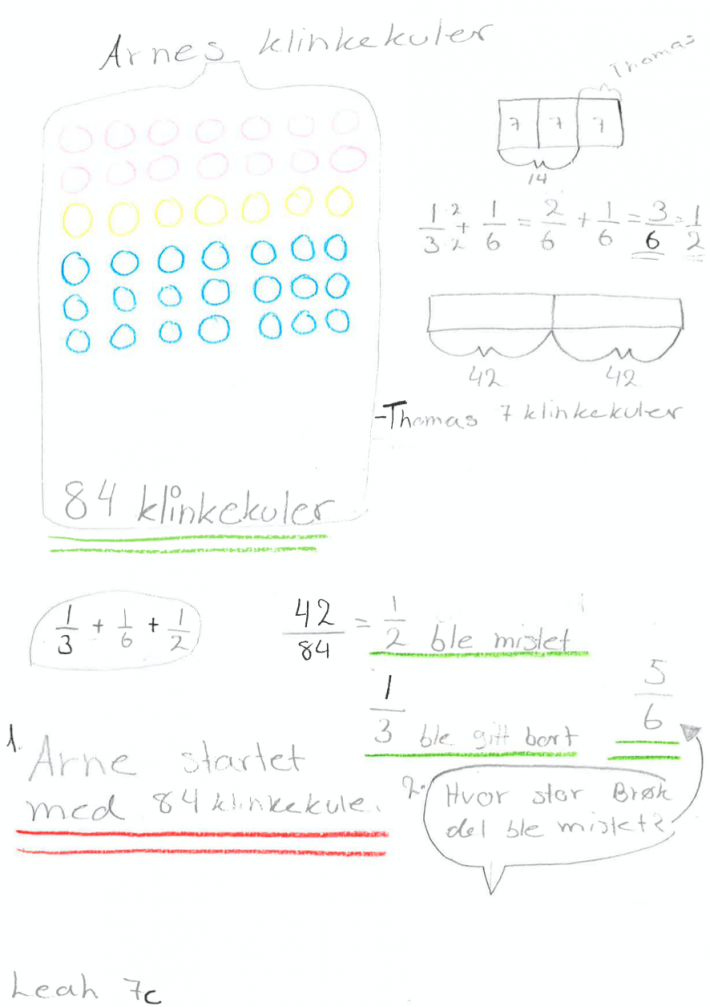 Arnes klinkekuler
Thomas
7 7 7
14
1/3 ·2/·2 + 1/6 = 2/6 + 1/6 = 3/6 = 1/2
42 42
-Thomas 7 klinkekuler
84 klinkekuler
1/3 + 1/6 + 1/2
42/84 = 1/2 ble mistet
1/3 ble gitt bort
5/6
1. Arne startet
med 84 klinkekule.
2. Hvor stor Brøk
del ble mistet?
Leah 7c